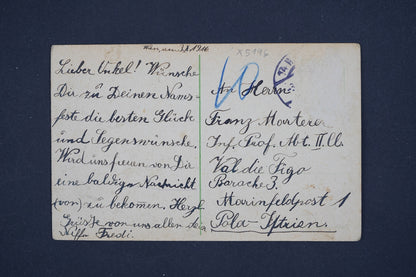 Wien, am 2.X.1916
Lieber Onkel! Wünsche
Dir zu Deinen Nams-
feste die besten Glück
und Segenswünsche.
Wird uns freuen von Dir
eine baldige Nachricht
(von) zu bekomen. Herzl.
Grüsse von uns allen
Neffe Fredi.
X5146
10
An Herrn
Franz Morterer
Inf. Prof. Abt. II.
Val die Figo
Baracke 3.
Marinfeldpost 1
Pola - Istrien.